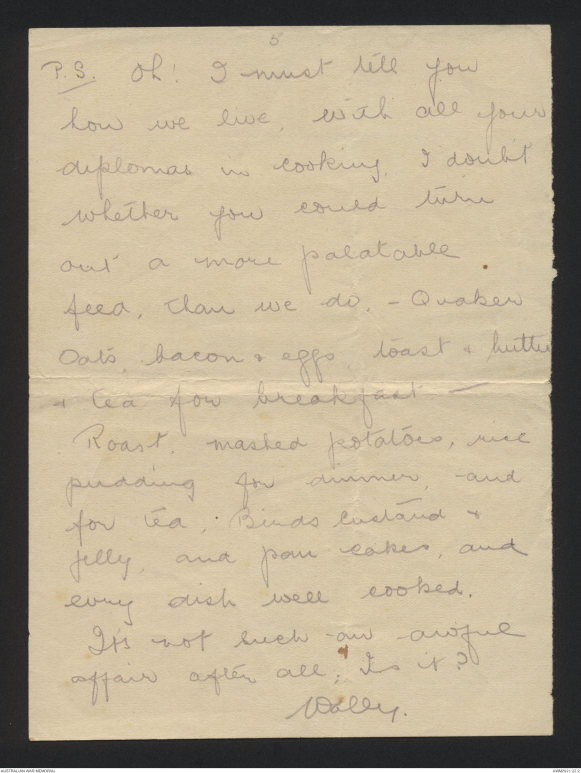 5
P.S. Oh! I must tell you
how we live, with all your
diplomas in cooking, I doubt
whether you could turn
out a more palatable
feed, than we do. - Quaker
Oats, bacon & eggs, toast & butter
& tea for breakfast —
Roast, mashed potatoes, rice
pudding for dinner, and
for tea, Birds custard &
jelly, and pan cakes, and
every dish well cooked.
It's not such an awful
affair after all; Is it?
Wally.
AUSTRALIAN WAR MEMORIAL